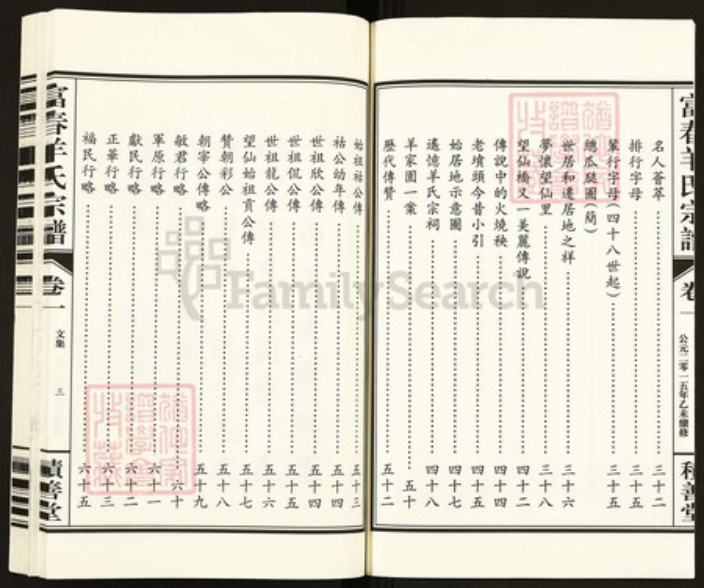 富春羊氏宗譜
卷一
公元二零一五年乙未續修
積善堂
名人薈萃 三十二
排行字母 三十五
輩行字母(四十八世起) 三十五
總瓜瓞圖(簡)
世居和遷居地之祥 三十六
夢懷望仙里 三十八
望仙橋又一美麗傳說 四十二
傳說中的火燒秧 四十四
老墳頭今昔小引 四十五
始居地示意圖 四十七
遙憶羊氏宗祠 四十八
羊家園一案 五十
歷代傳贊 五十二
始祖祉公傳 五十三
祜公幼年傳 五十四
世祖欣公傳 五十四
世祖侃公傳 五十五
世祖龍公傳 五十六
望仙始祖貢公傳 五十七
贊朝彩公 五十八
朝寧公傳略 五十九
敏君行略 六十
軍原行略 六十一
獻民行略 六十二
正華行略 六十三
福民行略 六十五
富春羊氏宗譜
卷一
文集
三
積善堂
FamilySearch